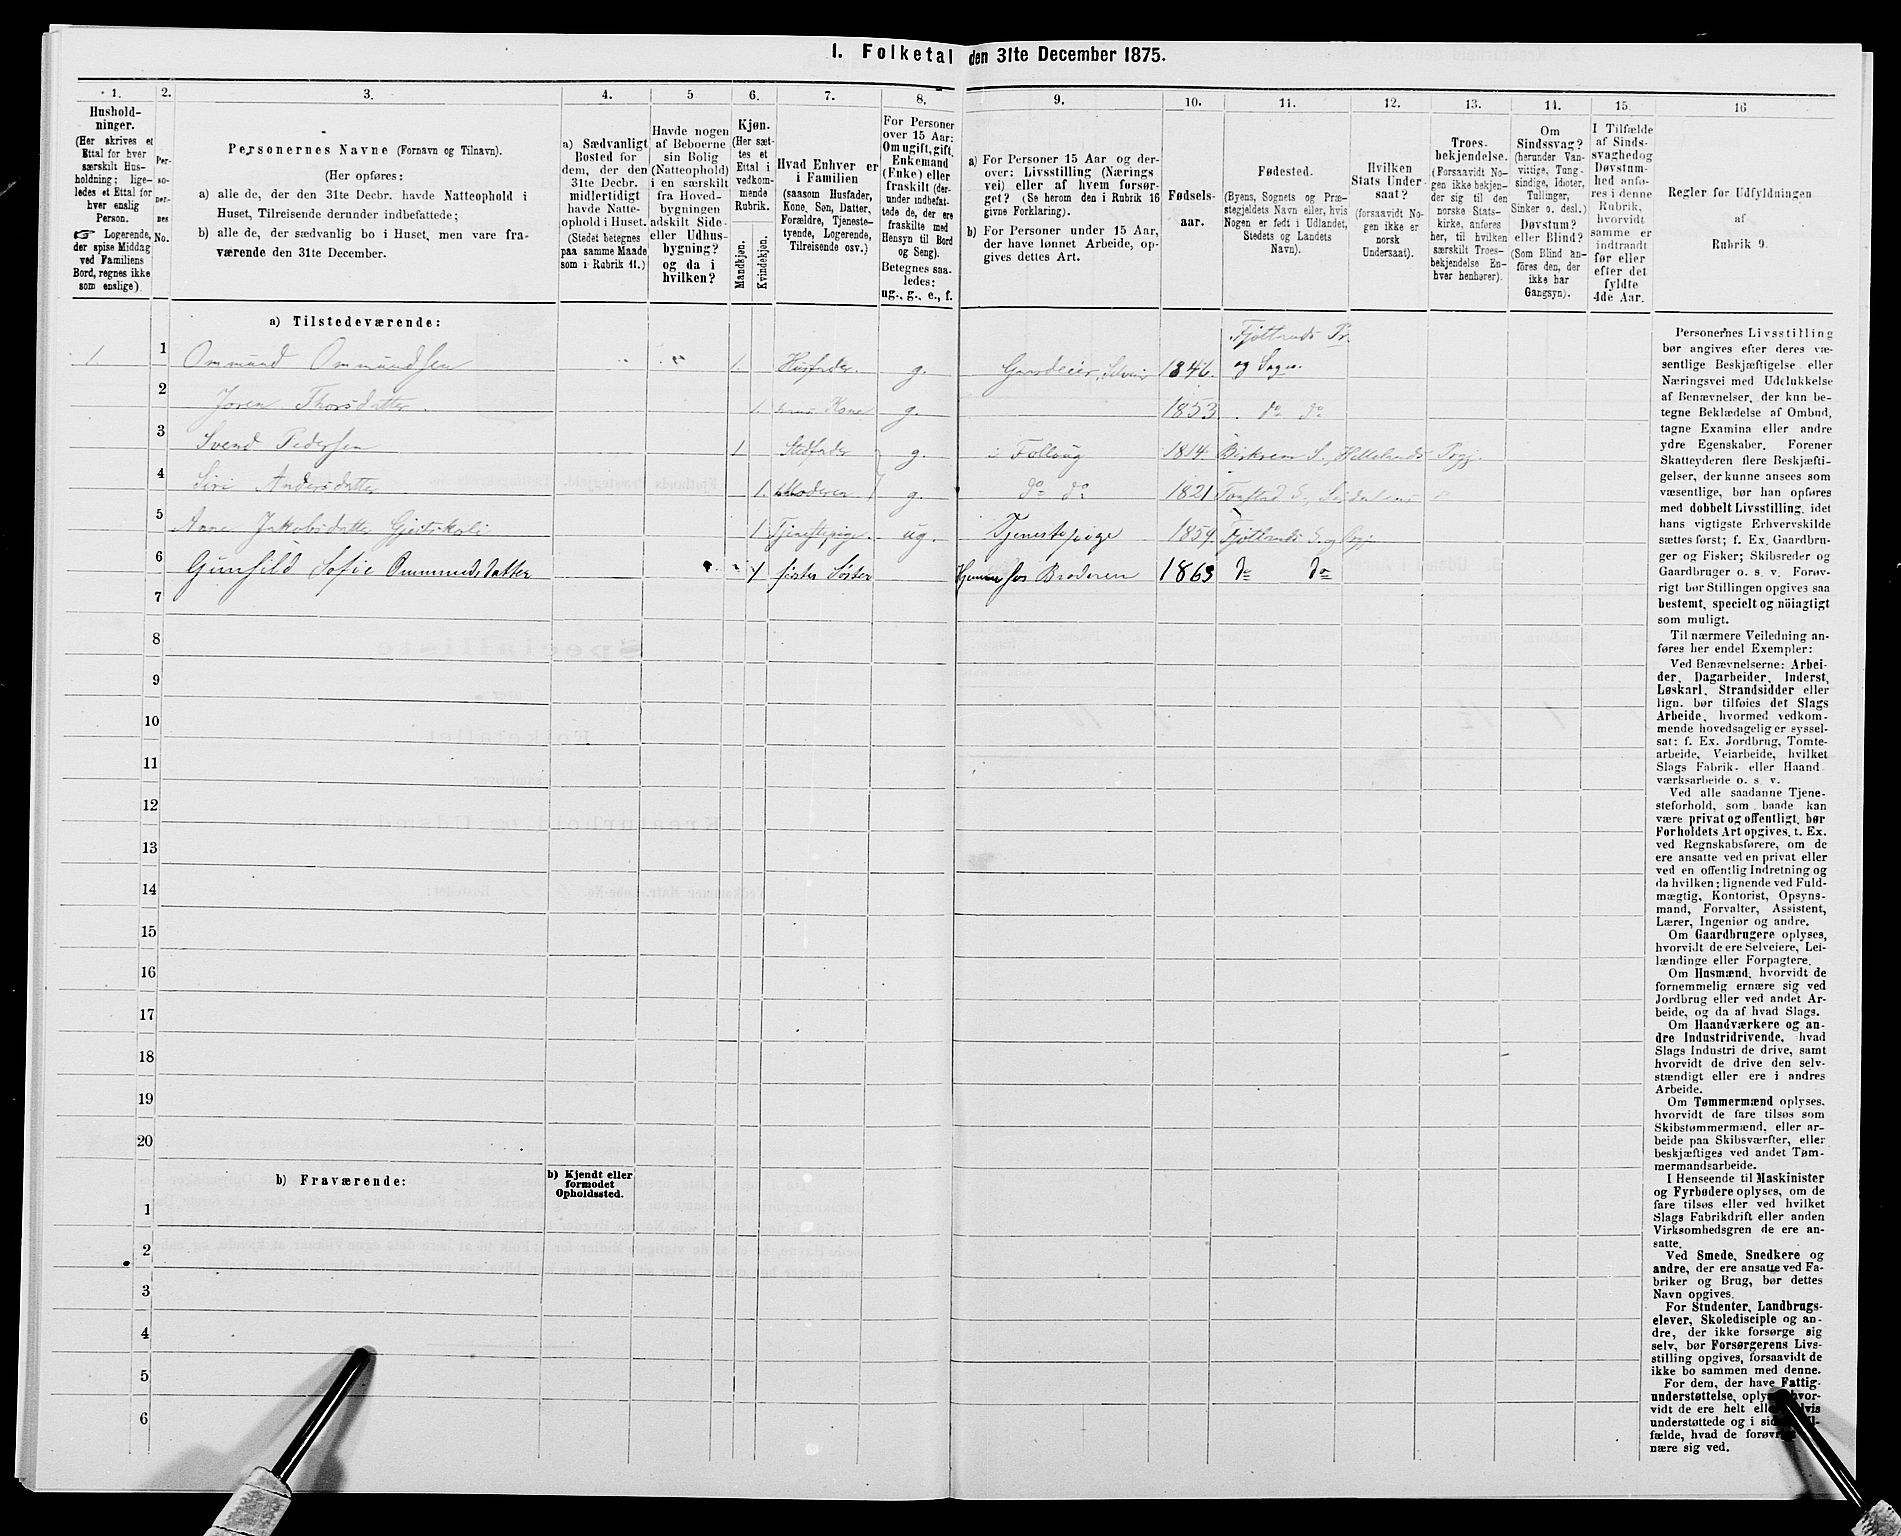 I. Folketal den 31te December 1875.
1. 2. 3. 4. 5 6. 7. 8. 9. 10. 11. 12. 13. 14. 15. 16
Hushold-
ninger.
(Her skrives et
Ettal for hver
særskilt Hus-
holdning; lige-
ledes et Ettal for
hver enslig
Person.
☞ Logerende,
der spise Middag
ved Familiens
Bord, regnes ikke
som enslige).
Per-
so-
ner-
nes
No.
Personernes Navne (Fornavn og Tilnavn).
(Her opføres:
a) alle de, der den 31te Decbr. havde Natteophold i
Huset, Tilreisende derunder indbefattede;
b) alle de, der sædvanlig bo i Huset, men vare fra-
værende den 31te December.
a) Sædvanligt
Bosted for
dem, der den
31te Decbr.
midlertidigt
havde Natte-
ophold i Huset.
(Stedet betegnes
paa samme Maade
som i Rubrik 11.)
Havde nogen
af Beboerne
sin Bolig
(Natteophold)
i en særskilt
fra Hoved-
bygningen
adskilt Side-
eller Udhus-
bygning?
og da i
hvilken?
Kjøn.
(Her sæt-
tes et
Ettal i
vedkom-
mende
Rubrik.
Mandkjøn.
Kvindekjøn.
Hvad Enhver er
i Familien
(saasom Husfader,
Kone, Søn, Datter,
Forældre, Tjeneste-
tyende, Logerende,
Tilreisende osv.)
For Personer
over 15 Aar:
Om ugift, gift,
Enkemand
(Enke) eller
fraskilt (der-
under indbefat-
tede de, der ere
fraskilte med
Hensyn til Bord
og Seng).
Betegnes saa-
ledes:
ug., g., e., f.
a) For Personer 15 Aar og der-
over: Livsstilling (Nærings
vei) eller af hvem forsør-
get? (Se herom den i Rubrik 16
givne Forklaring).
b) For Personer under 15 Aar,
der have lønnet Arbeide, op-
gives dettes Art.
Fødsels-
aar.
Fødested.
(Byens, Sognets og Præ-
stegjeldets Navn eller, hvis
Nogen er født i Udlandet,
Stedets og Landets
Navn).
Hvilken
Stats Under-
saat?
(forsaavidt No-
gen ikke er
norsk
Undersaat).
Troes-
bekjendelse.
(Forsaavidt No-
gen ikke bekjen-
der sig til den
norske Stats-
kirke, anføres
her, til hvilken
særskilt Troes-
bekjendelse En-
hver henhører).
Om
Sindssvag?
(herunder Van-
vittige, Tung-
sindige, Idioter,
Tullinger,
Sinker o. desl.)
Døvstum?
eller Blind?
(Som Blind an-
føres den, der
ikke har
Gangsyn).
I Tilfælde
af Sinds-
svaghed og
Døvstum-
hed anfø-
res i denne
Rubrik,
hvorvidt
samme er
indtraadt
før eller
efter det
fyldte
4de Aar.
Regler for Udfyldningen
af
Rubrik 9.
a) Tilstedeværende:
1 1 Ommund Ommundsen 1. Husfader. g. Gaardeier, Selveier 1846. Fjotlands Pr. og Sogn.
2 Joren Thorsdatter. 1. hans Kone g. 1853 do do
3 Svend Pedersen 1 Stedfader g. i Follaug 1814. Birkrem S., Hellelands Prgj.
4 Siri Andersdatter 1. Moderen g. do do 1821 Tonstad S.,
5 Anne Jakobsdatter Gjeitskoli 1 Tjenestepige. ug. Tjenestepige 1859. Fjotlands S. og Prgj.
6 Gunhild Sofie Ommundsdatter 1 Søster Hjemme hos Broderen 1863 do do
7
8
9
10
11
12
13
14
15
16
17
18
19
20
b) Fraværende:
b) Kjendt eller
formodet
Opholdssted.
1
2
3
4
5
6
Personernes Livsstilling
bør angives efter deres væ-
sentlige Beskjæftigelse eller
Næringsvei med Udelukkelse
af Benævnelser, der kun be-
tegne Beklædelse af Ombud,
tagne Examina eller andre
ydre Egenskaber. Forener
Skatteyderen flere Beskjæfti-
gelser, der kunne ansees som
væsentlige, bør han opføres
med dobbelt Livsstilling, idet
hans vigtigste Erhvervskilde
sættes først; f. Ex. Gaardbru-
ger og Fisker; Skibsreder og
Gaardbruger o. s. v. Forøv-
rigt bør Stillingen opgives saa
bestemt, specielt og nöiagtigt
som muligt.
Til nærmere Veiledning an-
føres her endel Exempler:
Ved Benævnelserne: Arbei-
der, Dagarbeider, Inderst,
Løskarl, Strandsidder eller
lign. bør tilføies det Slags
Arbeide, hvormed vedkom-
mende hovedsagelig er syssel-
sat; f. Ex. Jordbrug, Tomte-
arbeide, Veiarbeide, hvilket
Slags Fabrik- eller Haand
værksarbeide o. s. v.
Ved alle saadanne Tjene-
steforhold, som baade kan
være privat og offentligt, bør
Forholdets Art opgives, t. Ex.
ved Regnskabsførere, om de
ere ansatte ved en privat eller
ved en offentlig Indretning og
da hvilken; lignende ved Fuld-
mægtig, Kontorist, Opsyns-
mand, Forvalter, Assistent,
Lærer, Ingeniør og andre.
Om Gaardbrugere oplyses,
hvorvidt de ere Selveiere, Lei-
lændinge eller Forpagtere.
Om Husmænd, hvorvidt de
fornemmelig ernære sig ved
Jordbrug eller ved andet Ar-
beide, og da af hvad Slags.
Om Haandværkere og an-
dre Industridrivende, hvad
Slags Industri de drive, samt
hvorvidt de drive den selv-
stændigt eller ere i andres
Arbeide.
Om Tømmermænd oplyses,
hvorvidt de fare tilsøs som
Skibstømmermænd, eller ar-
beide paa Skibsværfter, eller
beskjæftiges ved andet Tøm-
mermandsarbeide.
I Henseende til Maskinister
og Fyrbødere oplyses, om de
fare tilsøs eller ved hvilket
Slags Fabrikdrift eller anden
Virksomhedsgren de ere an-
satte.
Ved Smede, Snedkere og
andre, der ere ansatte ved Fa-
briker og Brug, bør dettes
Navn opgives.
For Studenter, Landbrugs-
elever, Skoledisciple og an-
dre, der ikke forsørge sig
selv, bør Forsørgerens Livs-
stilling opgives, forsaavidt de
ikke bo sammen med denne.
For dem, der have Fattig-
understøttelse, hvor-
vidt de ere helt
understøttede og i
fælde, hvad de
nære sig ved.